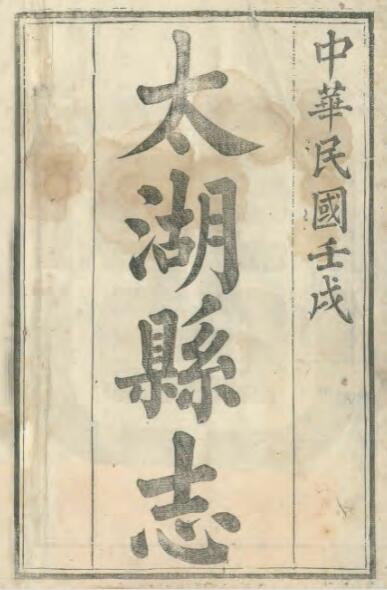 中華民國壬戌
太湖縣志